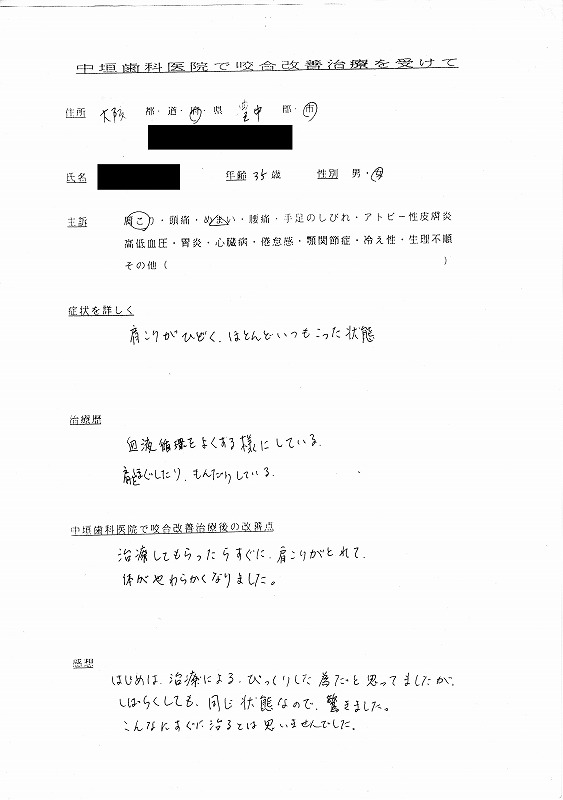 中垣歯科医院で咬合改善治療を受けて
住所 大阪 都・道・府・県 豊中 郡・市
氏名 年齢 35歳 性別 男・女
主訴 肩こり・頭痛・めまい・腰痛・手足のしびれ・アトピー性皮膚炎
高低血圧・胃炎・心臓病・倦怠感・顎関節症・冷え性・生理不順
その他( )
症状を詳しく
肩こりがひどく、ほとんどいつもこった状態
治療歴
血液循環をよくする様にしている。
肩ほぐしたり、もんだりしている。
中垣歯科医院で咬合改善治療後の改善点
治療してもらったらすぐに、肩こりがとれて、
体がやわらかくなりました。
感想
はじめは、治療による、びっくりした為だと思ってましたが、
しばらくしても、同じ状態なので、驚きました。
こんなにすぐに治るとは思いませんでした。